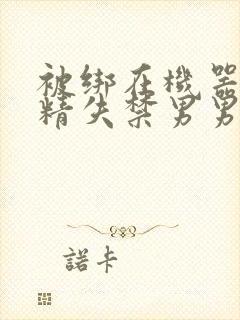 被绑在機器
精失禁男男
諾卡